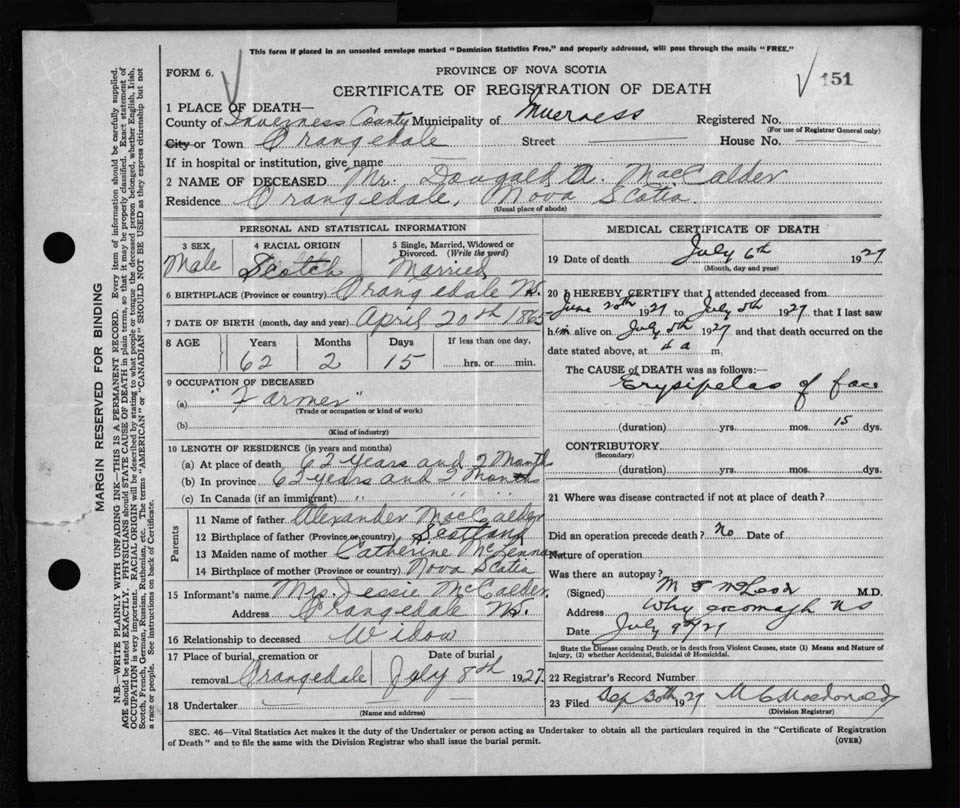 This form if placed in an unsealed envelope marked "Dominion Statistics Free," and properly addressed, will pass through the mails "FREE."
FORM 6.
PROVINCE OF NOVA SCOTIA
151
CERTIFICATE OF REGISTRATION OF DEATH
1 PLACE OF DEATH—
County of Inverness County Municipality of Inverness Registered No.
(For use of Registrar General only)
City or Town Orangedale Street House No.
If in hospital or institution, give name
2 NAME OF DECEASED Mr. Dougald A. MacCalder
Residence Orangedale, Nova Scotia.
(Usual place of abode)
PERSONAL AND STATISTICAL INFORMATION
3 SEX
Male
4 RACIAL ORIGIN
Scotch
5 Single, Married, Widowed or Divorced. (Write the word)
Married
6 BIRTHPLACE (Province or country) Orangedale NS.
7 DATE OF BIRTH (month, day and year) April 20th 1865
8 AGE Years Months Days If less than one day,
62 2 15 hrs. or min.
9 OCCUPATION OF DECEASED
(a) "Farmer"
(Trade or occupation or kind of work)
(b)
(Kind of industry)
10 LENGTH OF RESIDENCE (in years and months)
(a) At place of death 62 Years and 2 Months
(b) In province 62 years and 2 Months
(c) In Canada (if an immigrant) " " "
Parents
11 Name of father Alexander MacCalder
12 Birthplace of father (Province or country) Scotland
13 Maiden name of mother Catherine McLennan
14 Birthplace of mother (Province or country) Nova Scotia
15 Informant's name Mrs. Jessie McCalder
Address Orangedale NS.
16 Relationship to deceased Widow
17 Place of burial, cremation or removal Orangedale
Date of burial July 8th 1927
18 Undertaker
(Name and address)
MEDICAL CERTIFICATE OF DEATH
19 Date of death July 6th 1927
(Month, day and year)
20 I HEREBY CERTIFY that I attended deceased from
June 20th 1927 to July 5th 1927 that I last saw
him alive on July 5th 1927 and that death occurred on the
date stated above, at 4 a m.
The CAUSE OF DEATH was as follows:
Erysipelas of face
(duration) yrs. mos. 15 dys.
CONTRIBUTORY
(Secondary)
(duration) yrs. mos. dys.
21 Where was disease contracted if not at place of death?
Did an operation precede death? No Date of
Nature of operation
Was there an autopsy?
(Signed) M McLeod M.D.
Address Whycocomagh NS
Date July 9th/27
State the Disease causing Death, or in death from Violent Causes, state (1) Means and Nature of
Injury, (2) whether Accidental, Suicidal or Homicidal.
22 Registrar's Record Number
23 Filed Sep 30th 1927 M C Macdonald
(Division Registrar)
SEC. 46—Vital Statistics Act makes it the duty of the Undertaker or person acting as Undertaker to obtain all the particulars required in the "Certificate of Registration
of Death" and to file the same with the Division Registrar who shall issue the burial permit.
(OVER)
MARGIN RESERVED FOR BINDING
N.B.—WRITE PLAINLY WITH UNFADING INK—THIS IS A PERMANENT RECORD. Every item of information should be carefully supplied.
AGE should be stated EXACTLY. PHYSICIANS should STATE CAUSE OF DEATH in plain terms, so that it may be properly classified. Exact statement of
OCCUPATION is very important. RACIAL ORIGIN will be described by stating to what people or tongue the deceased person belonged, whether English, Irish,
Scotch, French, German, Russian, Ruthenian, etc. The terms "AMERICAN" or "CANADIAN" SHOULD NOT BE USED as they express citizenship but not
a race or people. See instructions on back of Certificate.